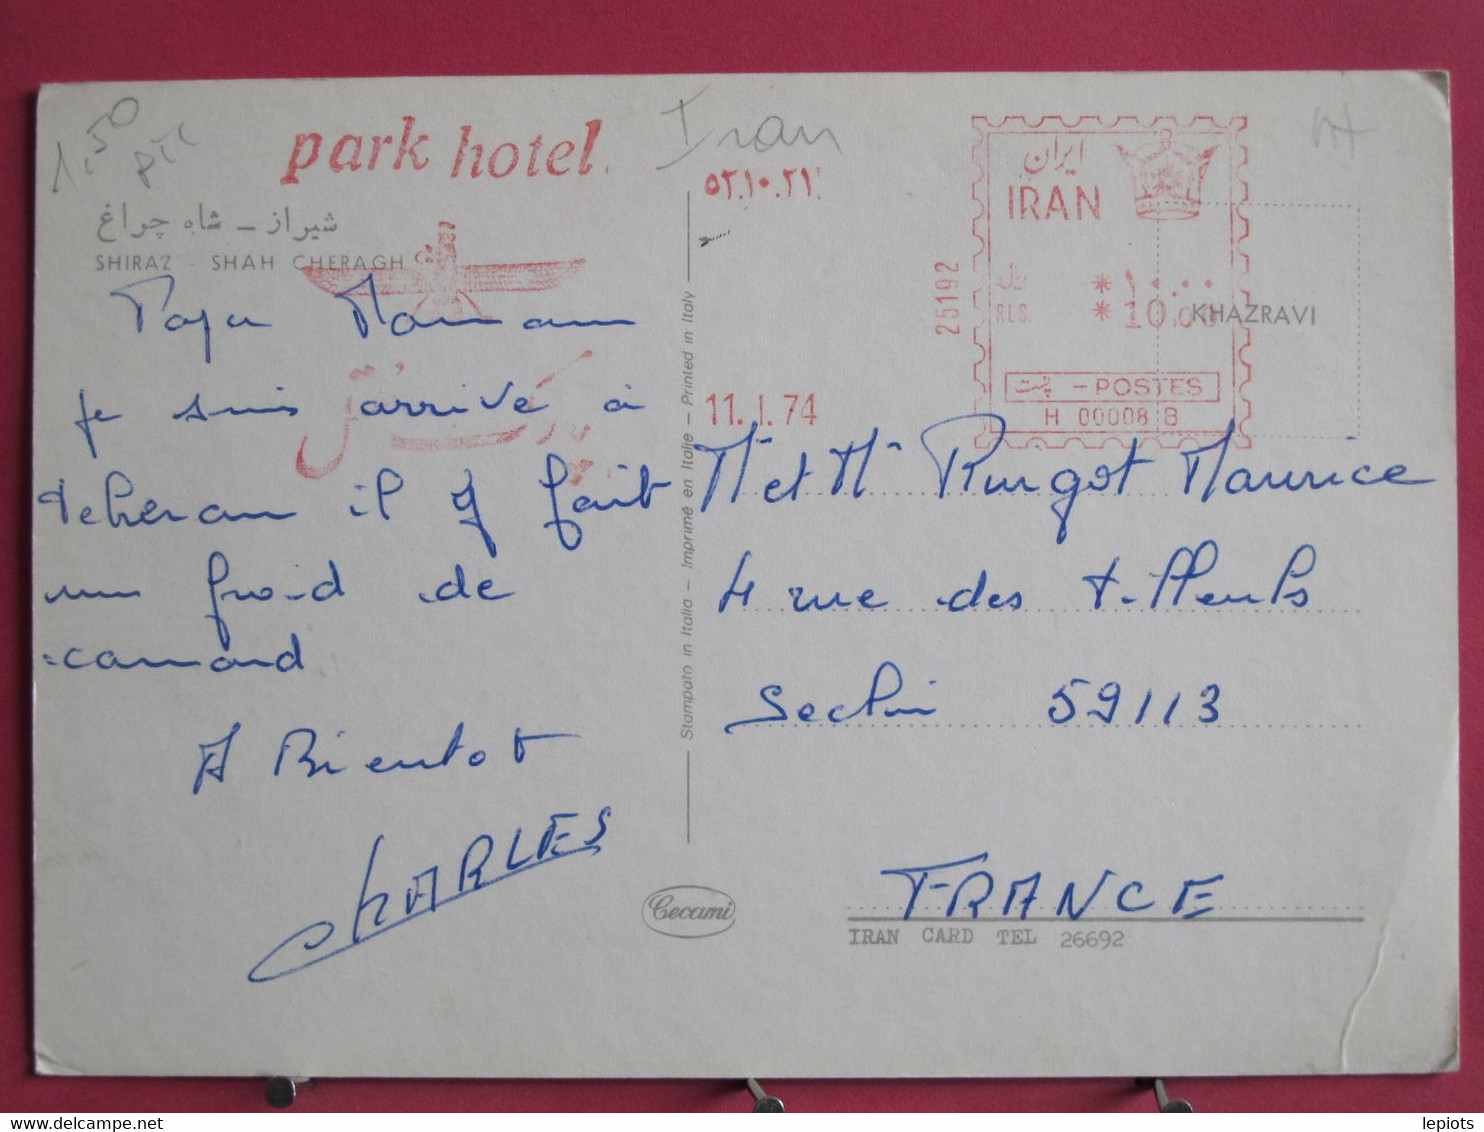 1,50
park hotel.
Iran
۵۲.۱۰.۲۱
ایران
IRAN
شیراز - شاه چراغ
SHIRAZ - SHAH CHERAGH
25192
ریال
RLS.
*۱۰.۰۰
*10.00
KHAZRAVI
پست - POSTES
H 00008 B
11.1.74
Papa Maman
je suis arrivé à
teheran il y fait
un froid de
canard
A Bientot
CHARLES
Stampato in Italia - Imprimé en Italie - Printed in Italy
Mr et Me Maurice
4 rue des tilleuls
Seclin 59113
FRANCE
Cecami
IRAN CARD TEL 26692
lepiots